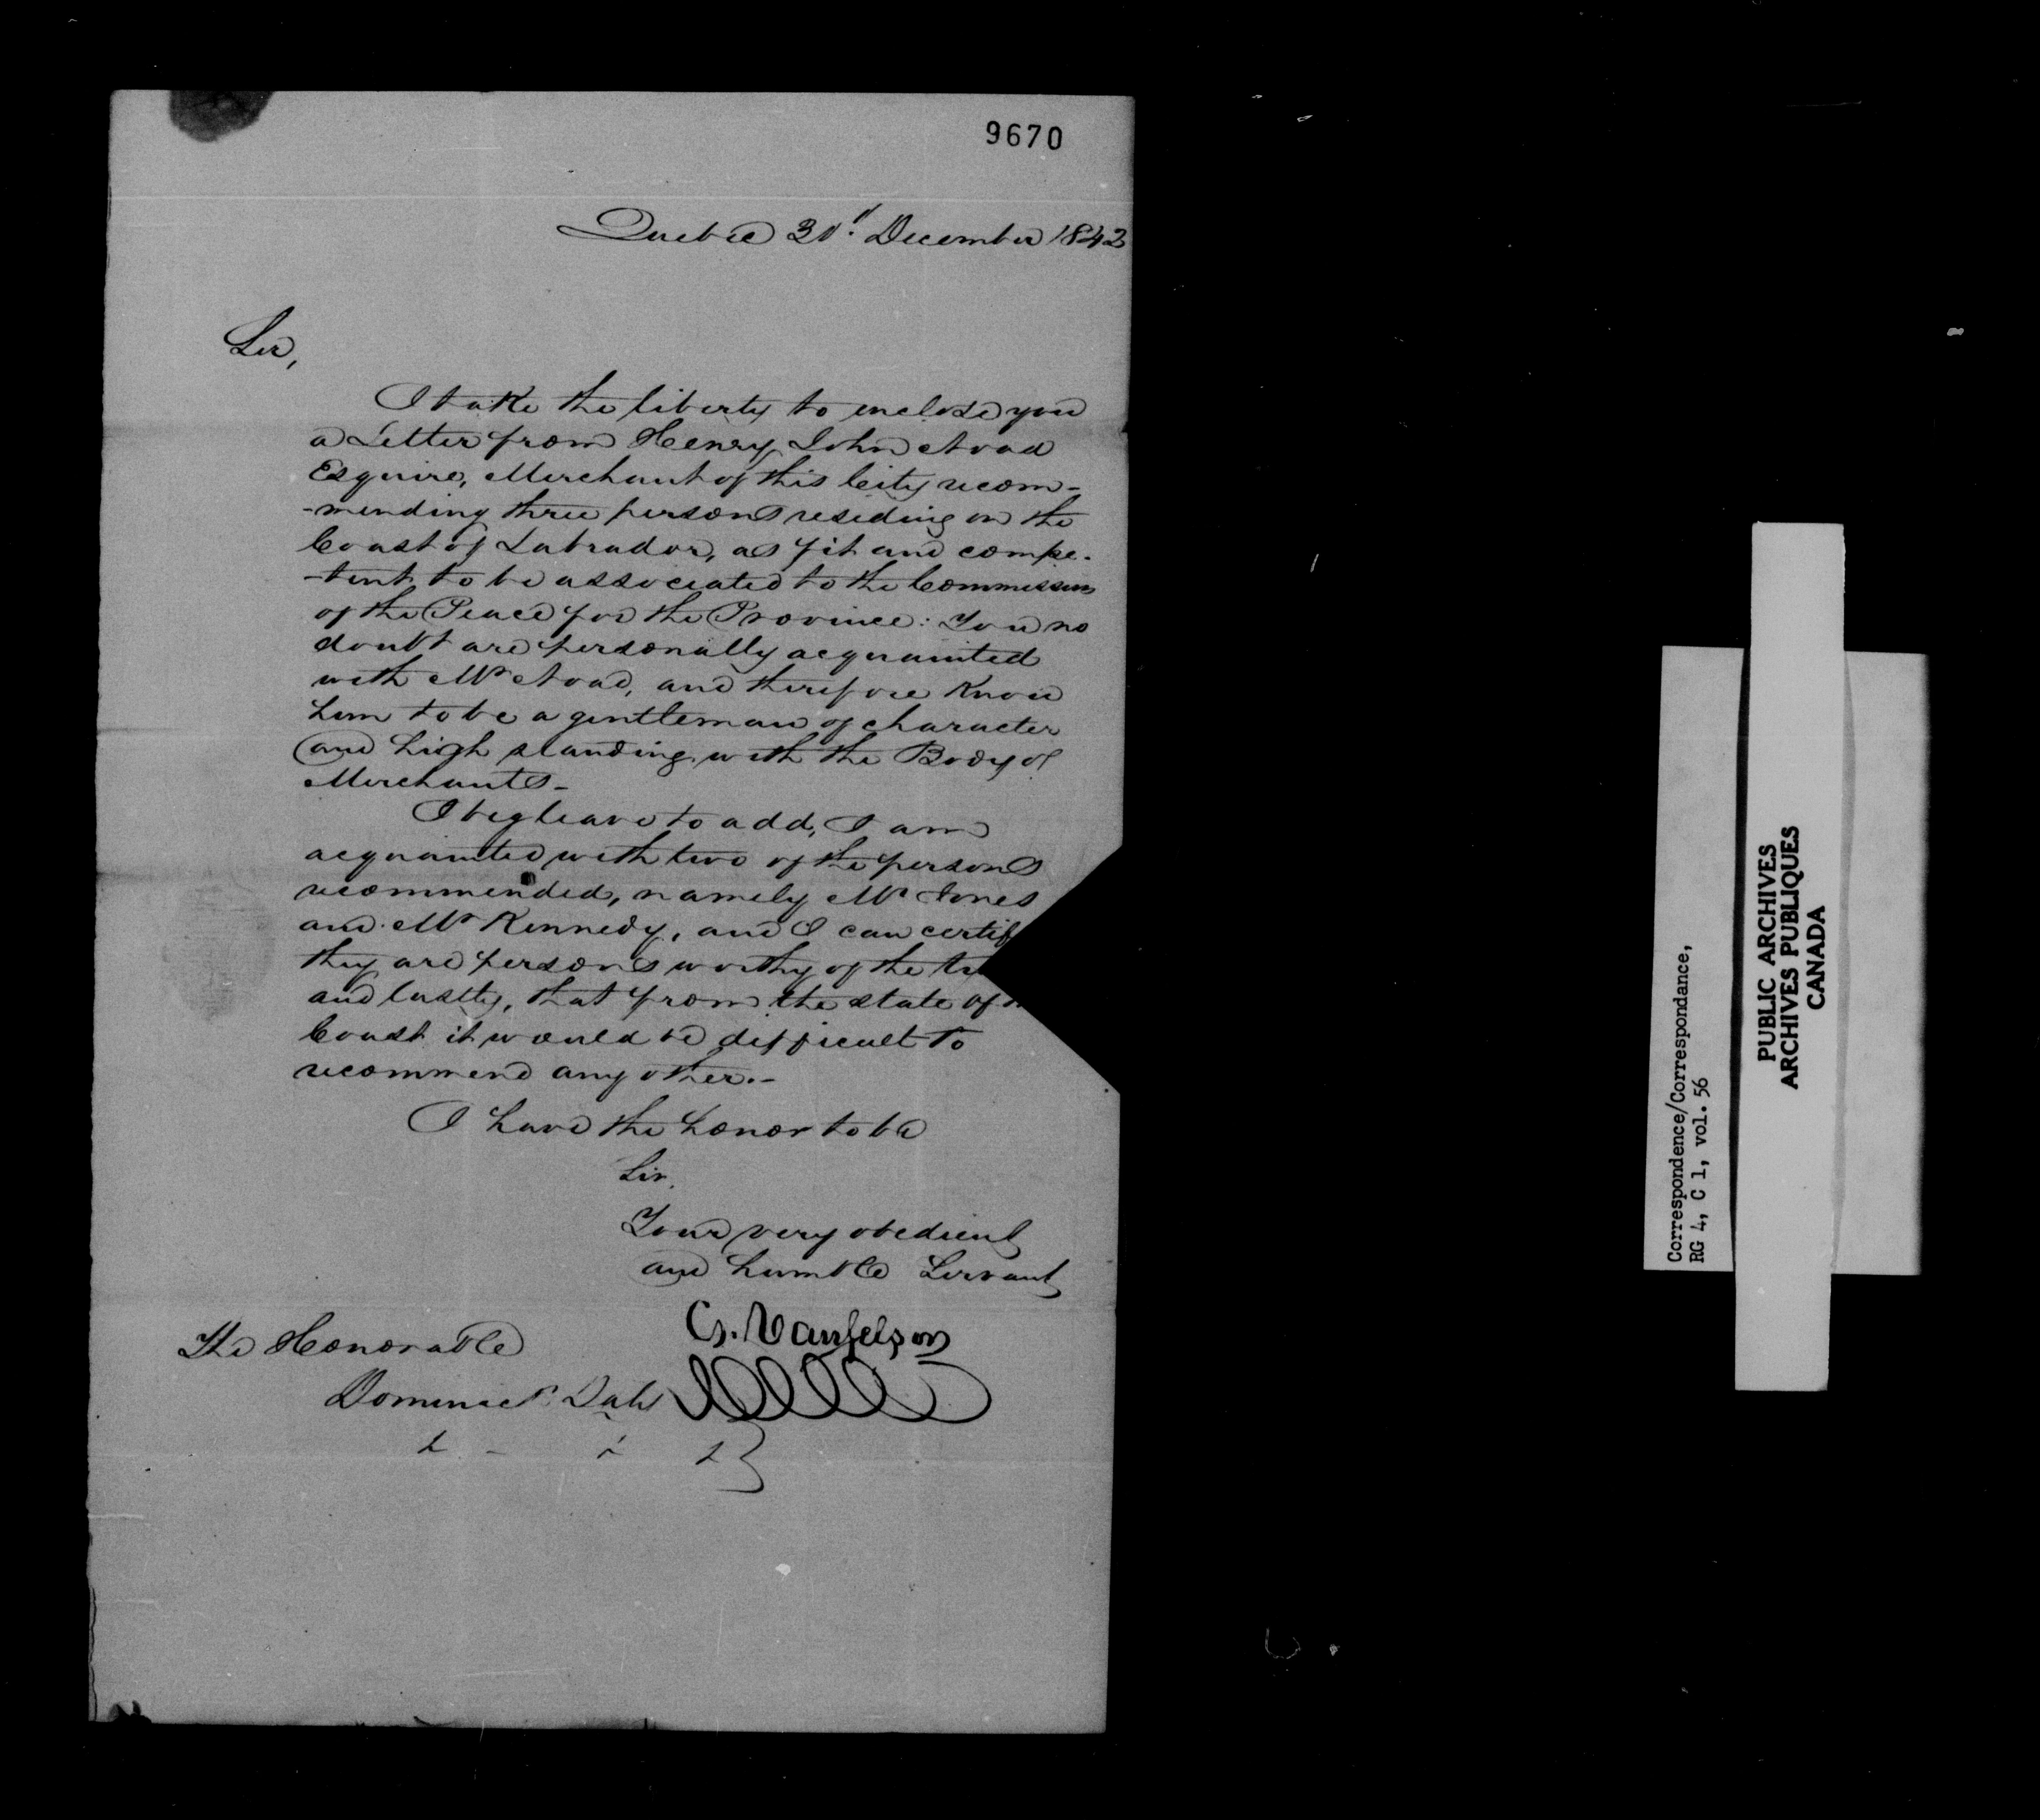 9670
Quebec 30th December 1843
Sir,
I take the liberty to enclose you
a Letter from Henry John Noad
Esquire, Merchant of this City recom-
-mending three persons residing on the
Coast of Labrador, as fit and compe-
-tent to be associated to the Commission
of the Peace for the Province: You no
doubt are personally acquainted
with Mr Noad, and therefore know
him to be a gentleman of character
and high standing with the Body of
Merchants-
I beg leave to add, I am
acquainted with two of the persons
recommended, namely Mr Jones
and Mr Kennedy, and I can certif
they are persons worthy of the tr
and lastly, that from the state of
Coast it would be difficult to
recommend any other.-
I have the honor to be
Sir.
Your very obedient
and humble Servant
G. Vanfelson
The Honorable
Dominick Daly
Correspondence/Correspondance,
RG 4, C 1, vol. 56
PUBLIC ARCHIVES
ARCHIVES PUBLIQUES
CANADA